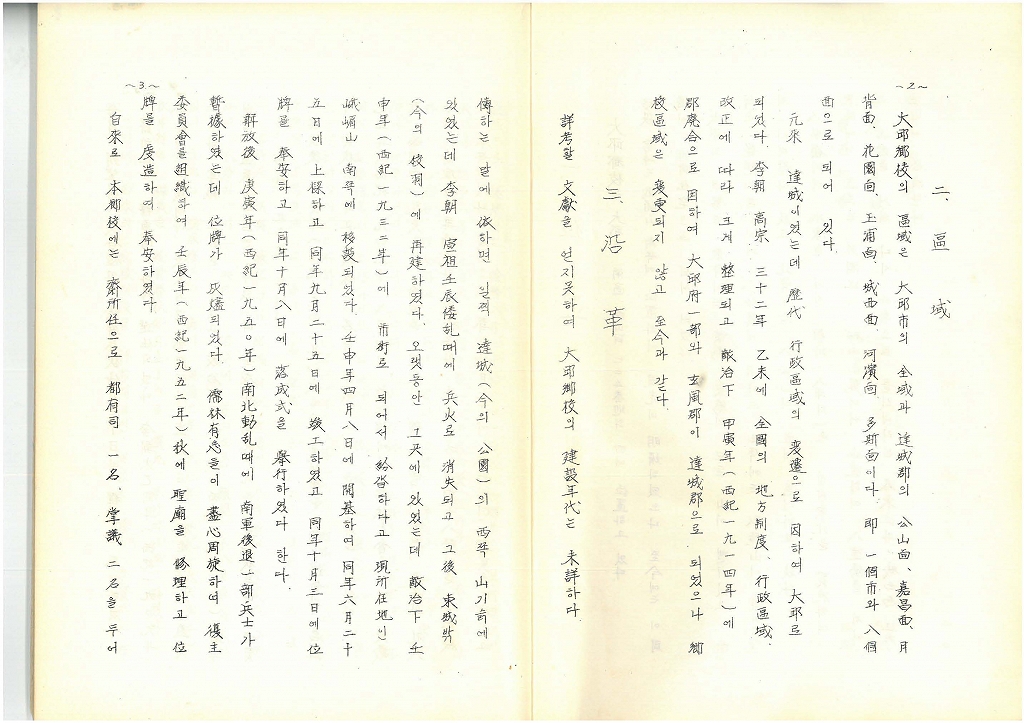 ~2~
二、區域
大邱鄕校의 區域은 大邱市의 全域과 達城郡의 公山面、嘉昌面、月
背面、花園面、玉浦面、城西面、河濱面、多斯面이다. 即 一個市와 八個
面으로 되어 있다.
元來 達城이었는데 歷代 行政區域의 変遷으로 因하여 大邱로
되었다. 李朝 高宗 三十二年 乙未에 全國의 地方制度、行政區域
改正에 따라 크게 整理되고 敵治下 甲寅年(西紀一九一四年)에
郡廃合으로 因하여 大邱府一部와 玄風郡이 達城郡으로 되었으나 鄕
校區域은 変更되지 않고 至今과 같다.
三、沿革
詳考할 文獻을 얻지못하여 大邱鄕校의 建設年代는 未詳하다.
~3~
傳하는 말에 依하면 일찍 達城(今의 公園)의 西쪽 山기슭에
있었는데 李朝 宣祖壬辰倭乱때에 兵火로 消失되고 그後 東城밖
(今의 校洞)에 再建하였다. 오랫동안 그곳에 있었는데 敵治下 壬
申年(西紀一九三二年)에 市街로 되어서 紛沓하다고 現所在地인
峨嵋山 南쪽에 移設되었다. 壬申年四月八日에 開基하여 同年六月二十
五日에 上樑하고 同年九月二十五日에 竣工하였고 同年十月三日에 位
牌를 奉安하고 同年十月八日에 落成式을 擧行하였다 한다.
解放後 庚寅年(西紀一九五〇年)南北動乱때에 南軍後退一部兵士가
暫據하였는데 位牌가 灰燼되었다. 儒林有志들이 盡心周旋하여 復主
委員會를組織하여 壬辰年(西紀一九五二年)秋에 聖廟을 修理하고 位
牌를 虔造하여 奉安하였다.
自來로 本鄕校에는 齋所任으로 都有司 一名、掌議 二名을 두어